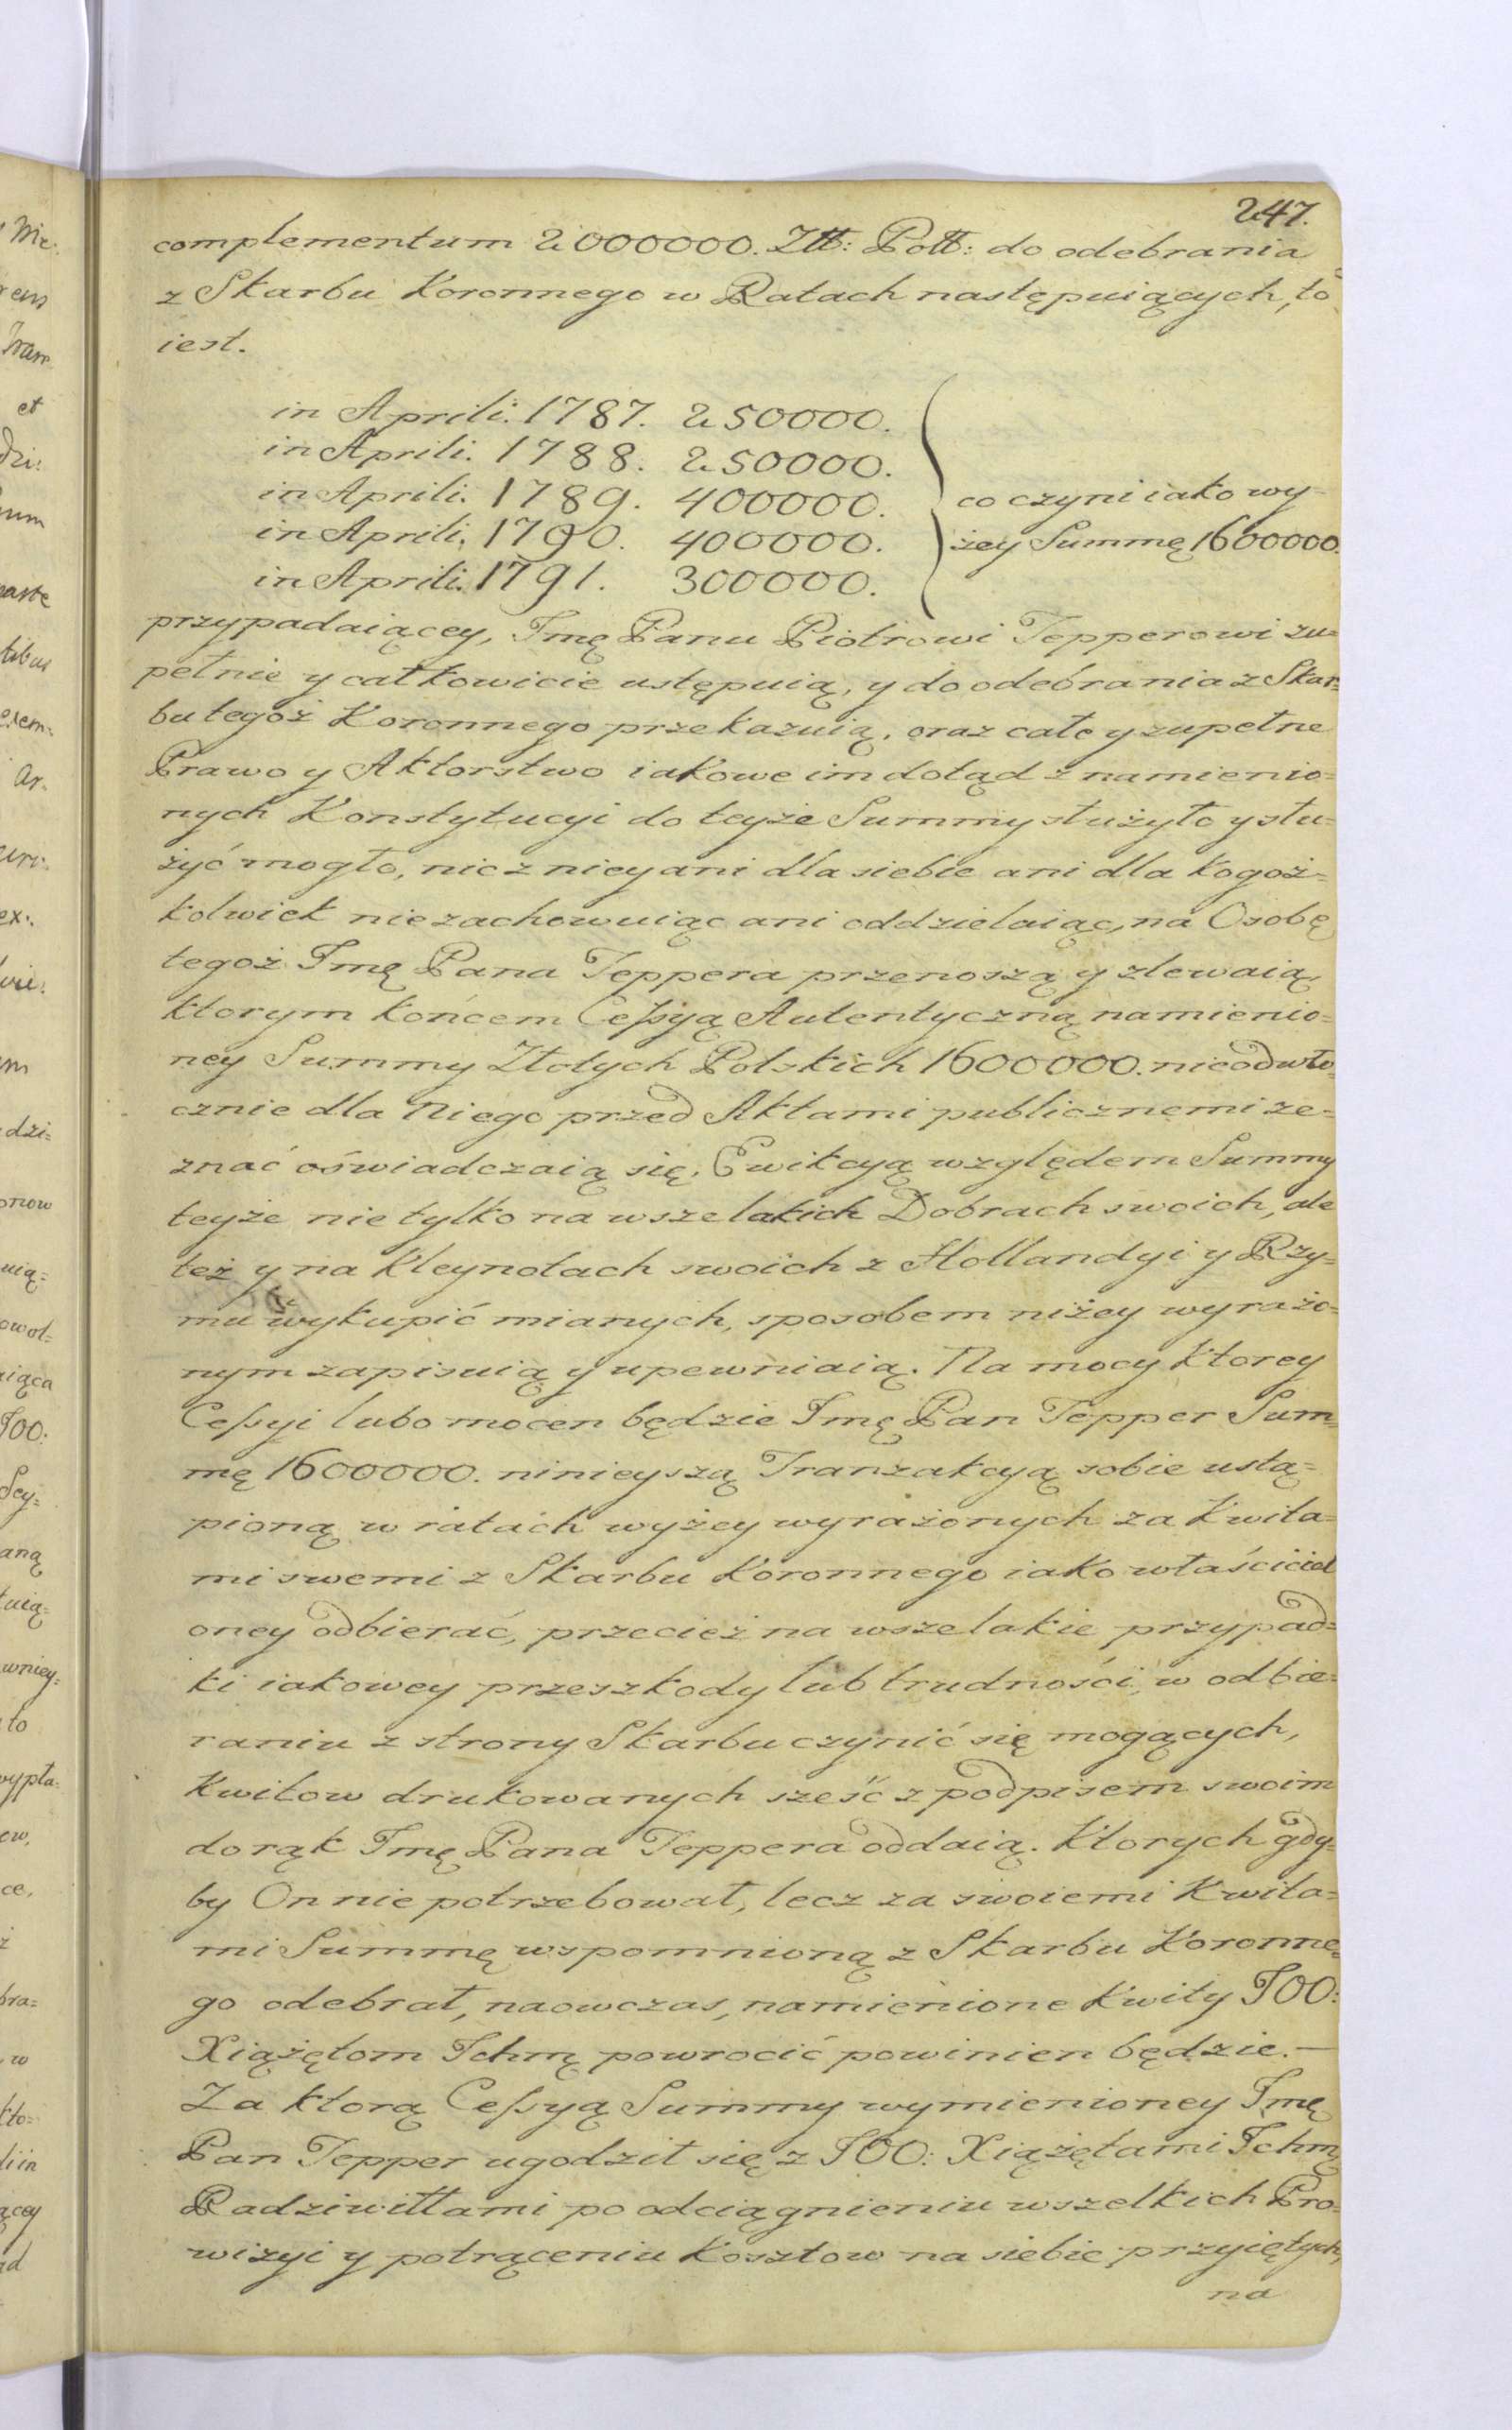 247.
complementum 2000000. Złł: Poll: do odebrania
z Skarbu Koronnego w Ratach następuiących, to
iest.
in Aprili. 1787. 250000.
in Aprili. 1788. 250000.
in Aprili. 1789. 400000. co czyni iako wy-
in Aprili. 1790. 400000. żey Summę 1600000.
in Aprili. 1791. 300000.
przypadaiącey, Jmę Panu Piotrowi Tepperowi zu=
pełnie y całkowicie ustępuią, y do odebrania z Skar=
bu tegoż Koronnego przekazuią, oraz całe y zupełne
Prawo y Aktorstwo iakowe im dotąd z namienio=
nych Konstytucyi do teyże Summy służyło y słu=
żyć mogło, nic z niey ani dla siebie ani dla kogoż=
kolwiek nie zachowuiąc ani oddzielaiąc, na Osobę
tegoż Jmę Pana Teppera przenoszą y zlewaią,
ktorym końcem Cessyą Autentyczną namienio=
ney Summy Złotych Polskich 1600000. nieodwło=
cznie dla Niego przed Aktami publicznemi ze=
znać oświadczaią się. Ewikcyą względem Summy
teyże nie tylko na wszelakich Dobrach swoich, ale
też y na Kleynotach swoich z Hollandyi y Rzy=
mu wykupić mianych, sposobem niżey wyrażo=
nym zapisuią y upewniaią. Na mocy ktorey
Cessyi lubo mocen będzie Jmę Pan Tepper Sum=
mę 1600000. ninieyszą Tranzakcyą sobie ustą=
pioną w ratach wyżey wyrażonych za Kwita=
mi swemi z Skarbu Koronnego iako właściciel
oney odbierać, przecież na wszelakie przypad=
ki iakowey przeszkody lub trudności, w odbie=
raniu z strony Skarbu czynić się mogących,
Kwitow drukowanych sześć z podpisem swoim
do rąk Jmę Pana Teppera oddaią. Ktorych gdy=
by On nie potrzebował, lecz za swoiemi Kwita=
mi Summę wspomnioną z Skarbu Koronne=
go odebrał, naowczas, namienione Kwity JOO:
Xiążętom Jchmę powrocić powinien będzie. —
Za ktorą Cessyą Summy wymienioney Jmę
Pan Tepper ugodził się z JOO: Xiążętami Jchmę
Radziwiłłami po odciągnieniu wszelkich Pro=
wizyi y potrąceniu Kosztow na siebie przyiętych,
na